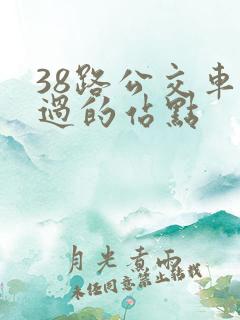 38路公交车
過的佔點
月光煮雨
未经同意禁止转载